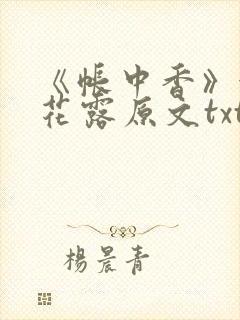 《帐中香》
花露原文txt
杨晨青